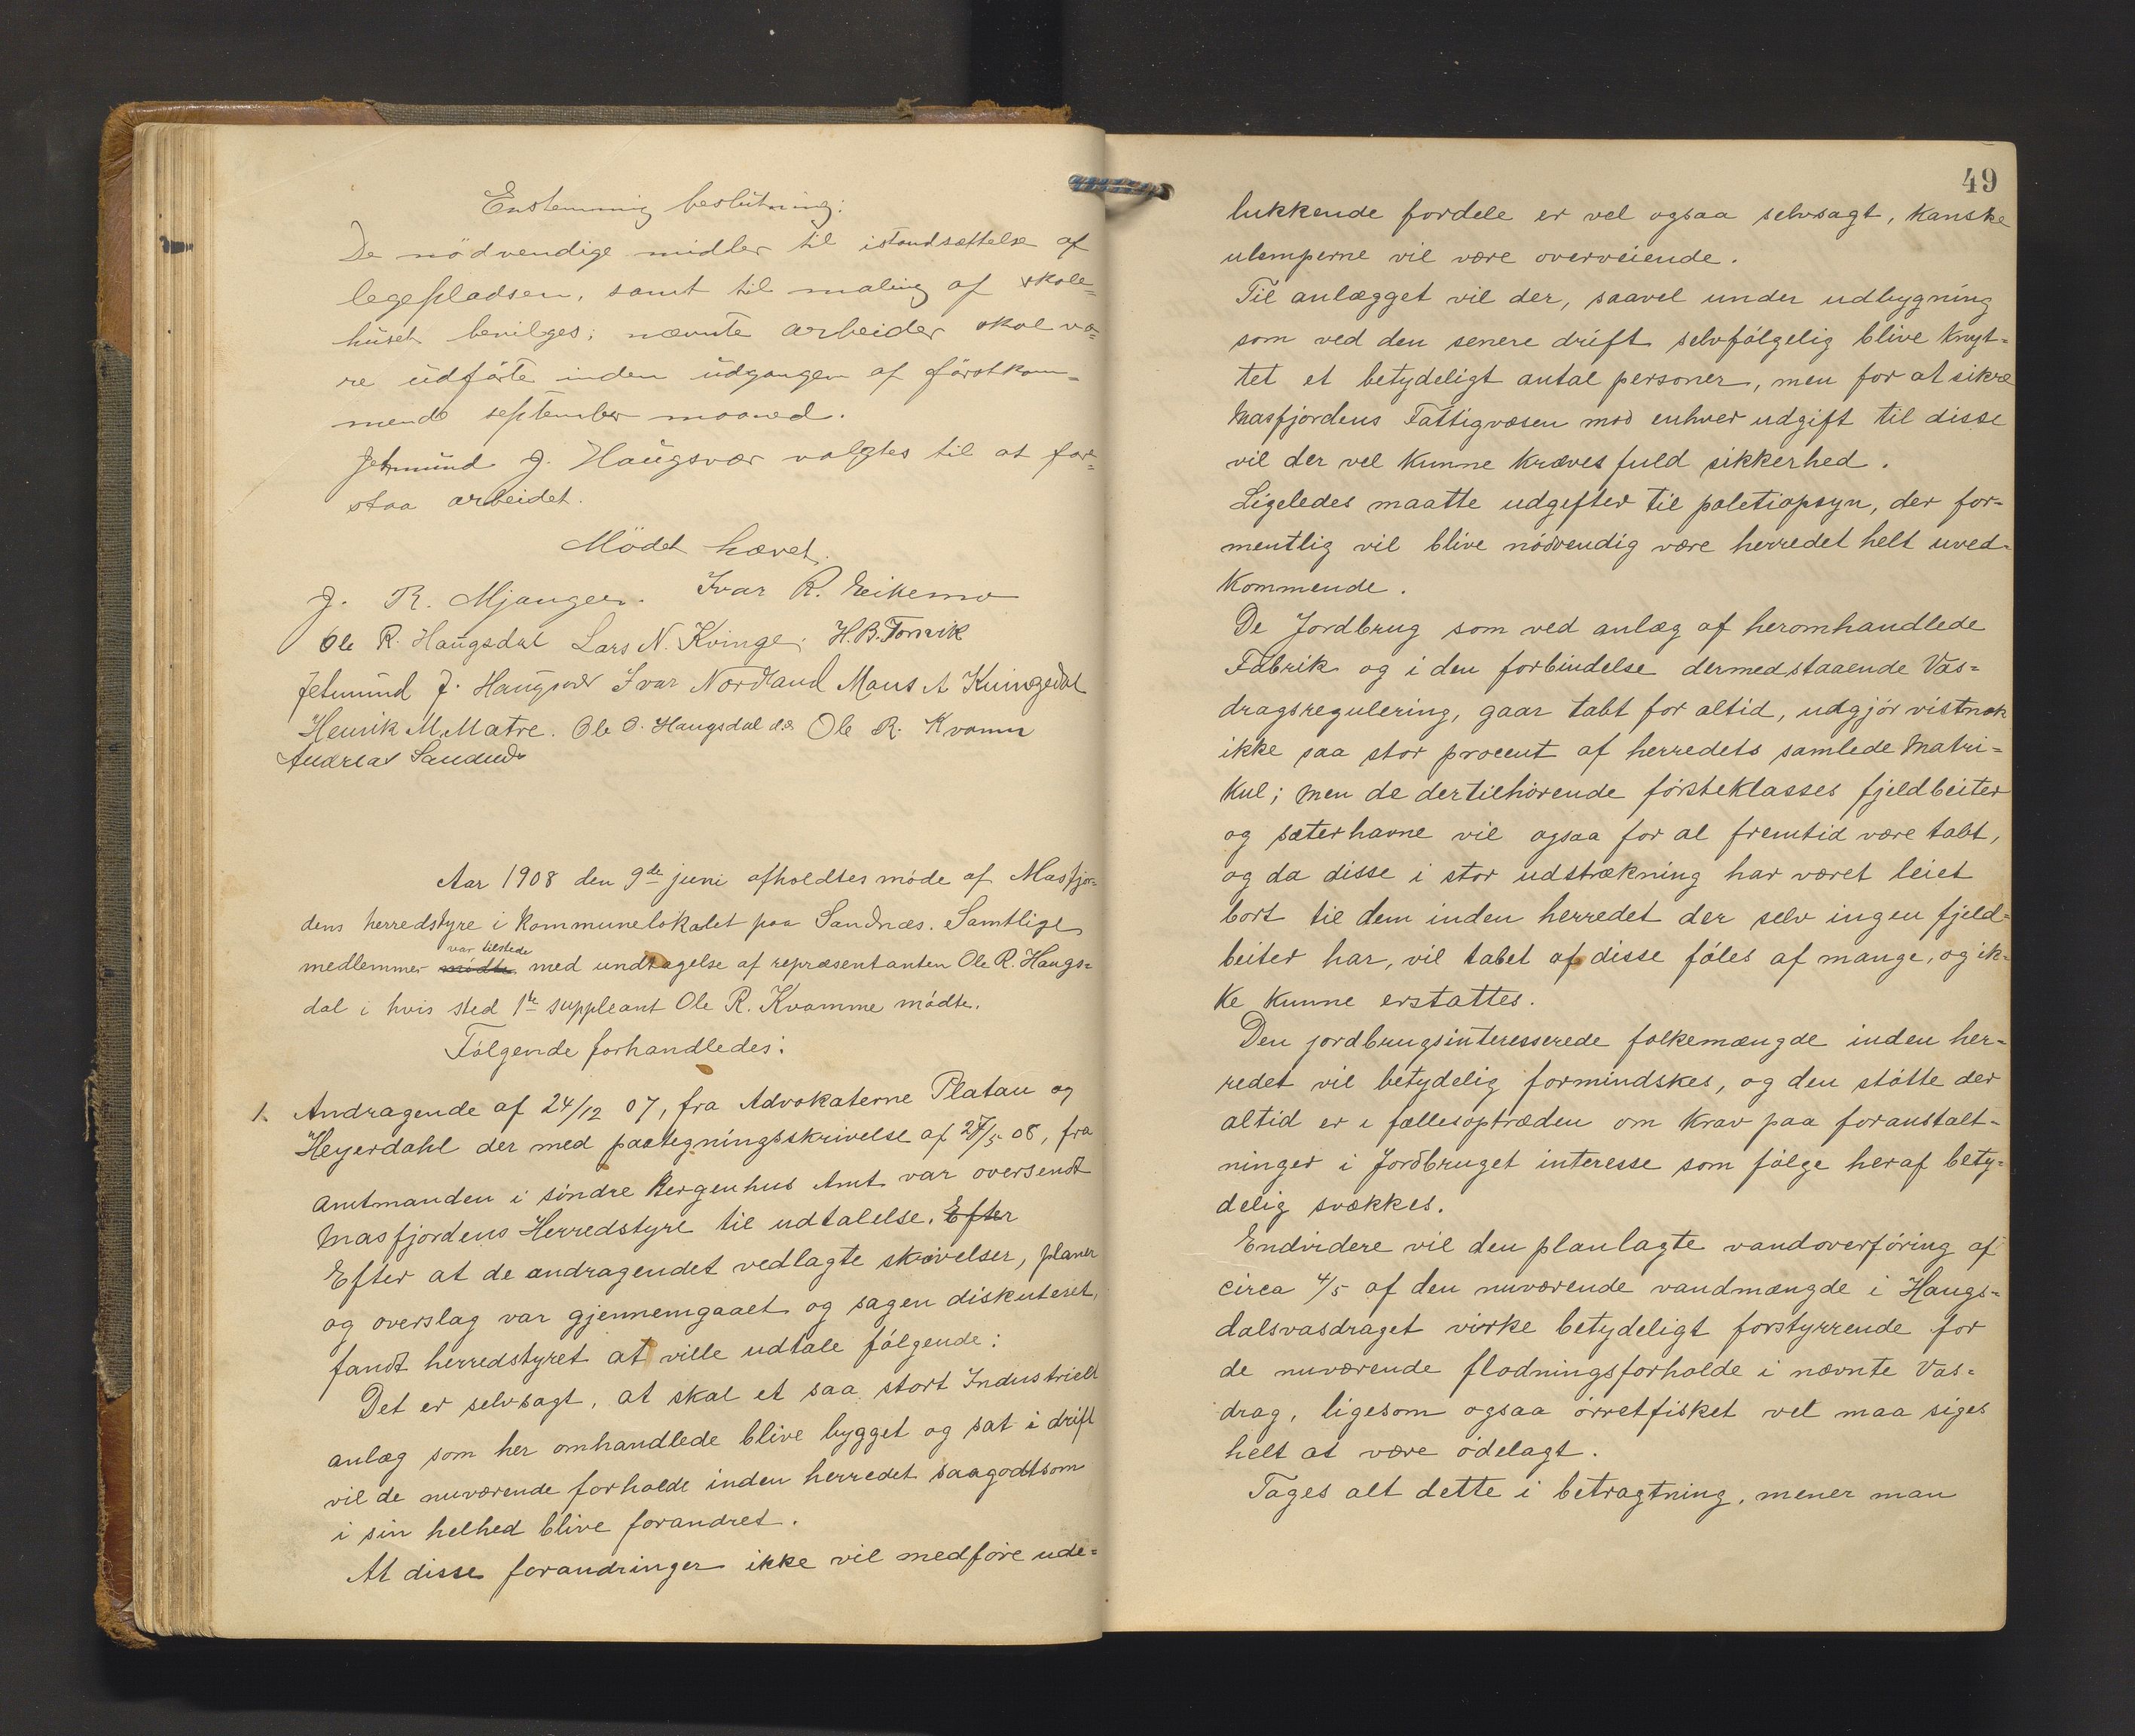 Enstemmig beslutning:
De nödvendige midler til istandsættelse af
legepladsen, samt til maling af skole=
huset bevilges; nævnte arbeider skal væ=
re udförte inden udgangen af förstkom=
mende september maaned.
Jetmund J. Haugsvær valgtes til at fore=
staa arbeidet.
Mödet hævet.
J. R. Mjanger. Ivar R. Eikemo
Ole R. Haugsdal Lars N. Kvinge. H.B. Torvik
Jetmund J. Haugsvær Ivar Nordland Mons A Kvingedal
Henrik M. Matre. Ole O. Haugsdal d.æ Ole R. Kvamm
Andreas Sandnes
Aar 1908 den 9de juni afholdtes möde af Masfjor=
dens herredstyre i kommunelokalet paa Sandnæs. Samtlige
var tilstede
medlemmer mödte med undtagelse af repræsentanten Ole R. Haugs=
dal i hvis sted 1ste suppleant Ole R. Kvamme mödte.
Fölgende forhandledes:
1. Andragende af 24/12 07, fra Advokaterne Platau og
Heyerdahl der med paategningsskrivelse af 27/5 08, fra
Amtmanden i söndre Bergenhus Amt var oversendt
Masfjordens Herredstyre til udtalelse. Efter
Efter at de andragendet vedlagte skrivelser, planer
og overslag var gjennemgaaet og sagen diskuteret,
fandt herredstyret at ville udtale fölgende:
Det er selvsagt, at skal et saa stort Industrielt
anlæg som her omhandlede blive bygget og sat i drift
vil de nuværende forholde inden herredet saagodtsom
i sin helhed blive forandret.
At disse forandringer ikke vil medföre ude=
49
lukkende fordele er vel ogsaa selvsagt, kanske
ulemperne vil være overveiende.
Til anlægget vil der, saavel under udbygning
som ved den senere drift selvfölgelig blive knyt=
tet et betydeligt antal personer, men for at sikre
Masfjordens Fattigvæsen mod enhver udgift til disse
vil der vel kunne kræves fuld sikkerhed.
Ligeledes maatte udgifter til politiopsyn, der for=
mentlig vil blive nödvendig være herredet helt uved=
kommende.
De Jordbrug som ved anlæg af heromhandlede
Fabrik og i den forbindelse dermedstaaende Vas=
dragsregulering, gaar tabt for altid, udgjör vistnok
ikke saa stor procent af herredets samlede Matri=
kul; men de dertilhörende försteklasses fjeldbeiter
og sæterhavne vil ogsaa for al fremtid være tabt,
og da disse i stor udstrækning har været leiet
bort til dem inden herredet der selv ingen fjeld=
beiter har, vil tabet af disse föles af mange, og ik=
ke kunne erstattes.
Den jordbrugsinteresserede folkemængde inden her=
redet vil betydelig formindskes, og den stötte der
altid er i fællesoptræden om krav paa foranstalt=
ninger i Jordbruget interesse som fölge heraf bety=
delig svækkes.
Endvidere vil den planlagte vandoverföring af
circa 4/5 af den nuværende vandmængde i Haugs=
dalsvasdraget virke betydeligt forstyrrende for
de nuværende flodningsforholde i nævnte Vas=
drag, ligesom ogsaa örretfisket vel maa siges
helt at være ödelagt.
Tages alt dette i betragtning, mener man